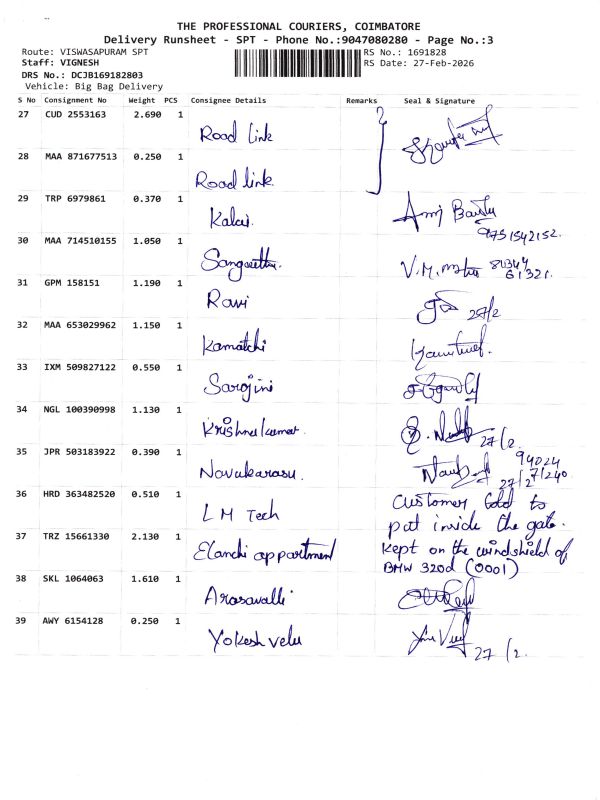 THE PROFESSIONAL COURIERS, COIMBATORE
Delivery Runsheet - SPT - Phone No.:9047080280 - Page No.:3
Route: VISWASAPURAM SPT
RS No.: 1691828
Staff: VIGNESH
RS Date: 27-Feb-2026
DRS No.: DCJB169182803
Vehicle: Big Bag Delivery
S No Consignment No Weight PCS Consignee Details Remarks Seal & Signature
27 CUD 2553163 2.690 1
Road link
28 MAA 871677513 0.250 1
Road link
29 TRP 6979861 0.370 1
Kalai
9751542152.
30 MAA 714510155 1.050 1
Sangeetha.
V.M.
61321.
31 GPM 158151 1.190 1
Ravi
27/2
32 MAA 653029962 1.150 1
Kamatchi
33 IXM 509827122 0.550 1
Sarojini
34 NGL 100390998 1.130 1
Krishnakumar
27/2.
35 JPR 503183922 0.390 1
94024
71240
Navukarasu.
27/2
36 HRD 363482520 0.510 1
Customer told to
L M Tech
put inside the gate.
37 TRZ 15661330 2.130 1
Elanchi appartment
kept on the windshield of
BMW 320d (0001)
38 SKL 1064063 1.610 1
Arasavalli
39 AWY 6154128 0.250 1
Yokesh velu
27/2.